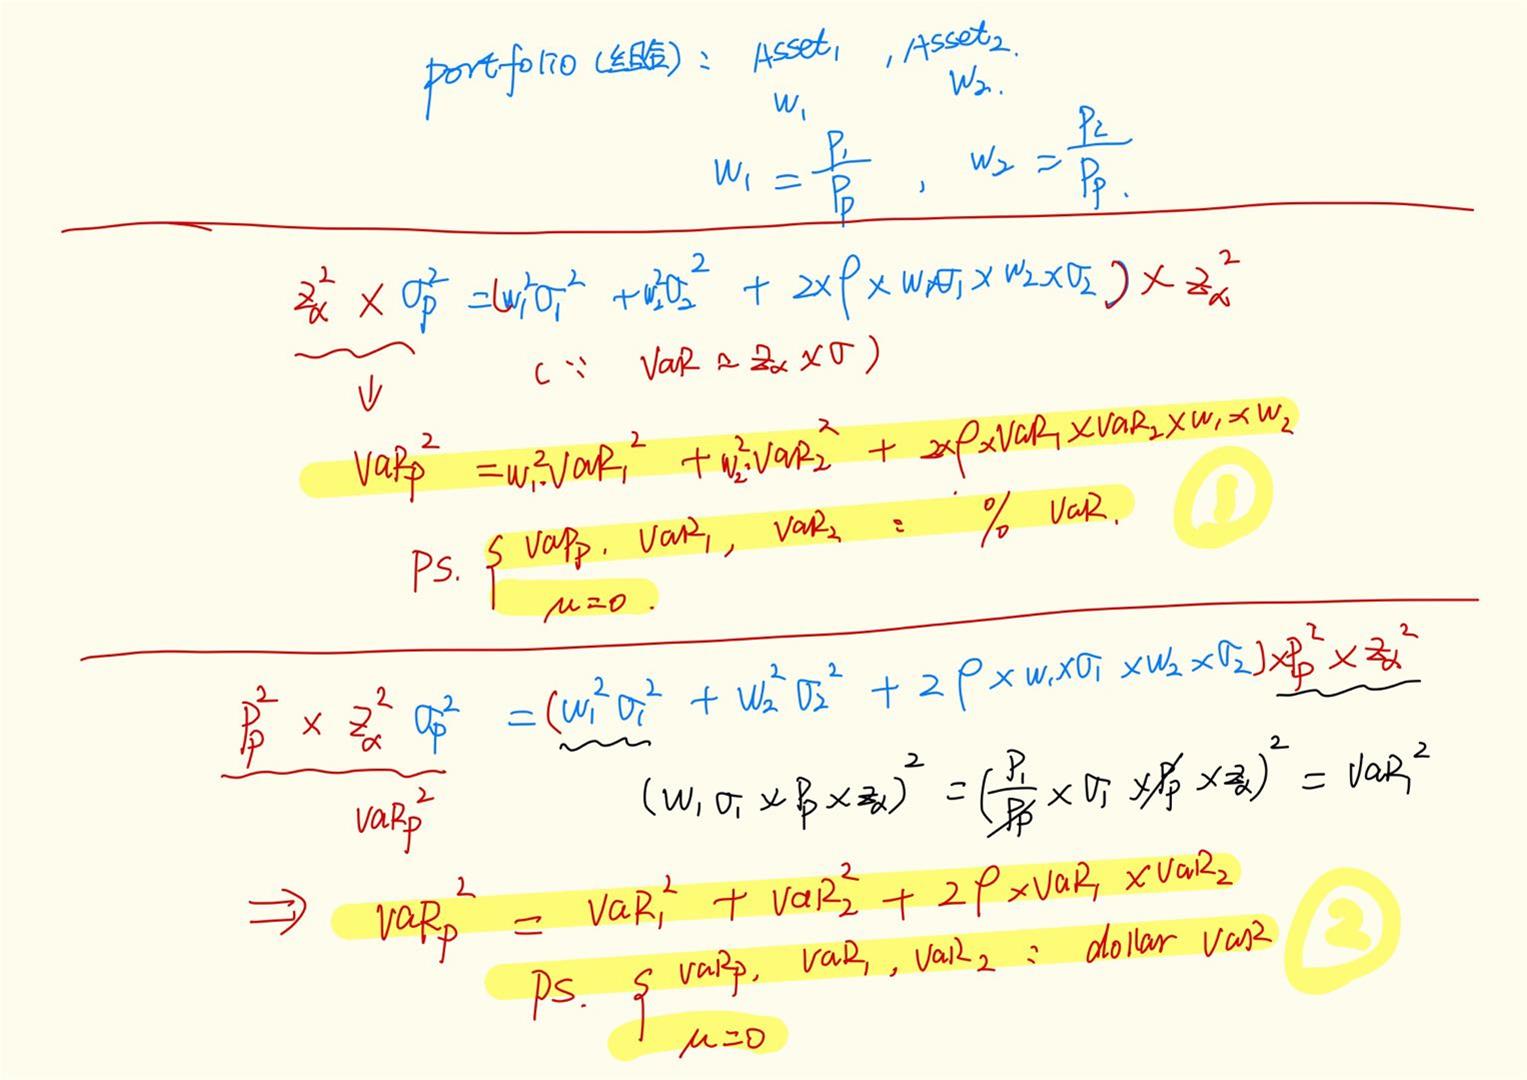 portfolio (组合): Asset₁ , Asset₂.
w₁ w₂.
w₁ = P₁/Pp , w₂ = P₂/Pp.
zα² × σp² = (w₁²σ₁² + w₂²σ₂² + 2×ρ×w₁×σ₁×w₂×σ₂) × zα²
↓ (∵ VaR = zα×σ)
VaRp² = w₁²·VaR₁² + w₂²·VaR₂² + 2×ρ×VaR₁×VaR₂×w₁×w₂
①
PS. { VaRp. VaR₁, VaR₂ : % VaR.
μ=0.
Pp² × zα² σp² = (w₁²σ₁² + w₂²σ₂² + 2ρ×w₁×σ₁×w₂×σ₂)×Pp²×zα²
VaRp² (w₁σ₁×Pp×zα)² = (P₁/Pp × σ₁ × Pp × zα)² = VaR₁²
⇒ VaRp² = VaR₁² + VaR₂² + 2ρ×VaR₁×VaR₂
②
PS. { VaRp. VaR₁, VaR₂ : dollar VaR
μ=0